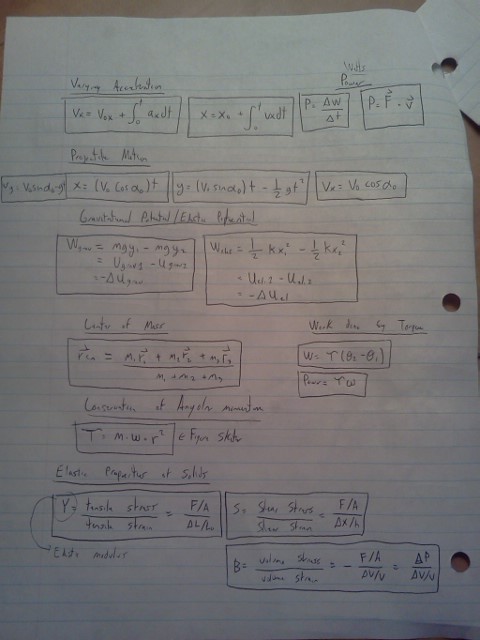 Varying Acceleration
Watts
Power
Vx = Vox + ∫₀ᵗ axdt
x = x₀ + ∫₀ᵗ vxdt
P = ΔW/Δt
P = F⃗ · v⃗
Projectile Motion
Vy = Vosinα₀-gt
x = (Vo cosα₀)t
y = (Vo sinα₀)t - 1/2 gt²
Vx = Vo cosα₀
Gravitational Potential/Elastic Potential
Wgrav = mgy₁ - mgy₂
= Ugrav1 - Ugrav2
= -ΔUgrav
= 1/2 kx₁² - 1/2 kx₂²
= Uel.1 - Uel.2
= -ΔUel
Center of Mass
Work done by Torque
r⃗cm = (m₁r⃗₁ + m₂r⃗₂ + m₃r⃗₃)/(m₁ + m₂ + m₃)
W = τ(θ₂-θ₁)
Power = τω
Conservation of Angular momentum
= m·w·r² ← Figure skater
Elastic Properties of Solids
Y = tensile stress/tensile strain = F/A/ΔL/L₀
S = Shear Stress/Shear strain = F/A/Δx/h
Elastic modulus
B = volume stress/volume strain = - F/A/ΔV/V = ΔP/ΔV/V